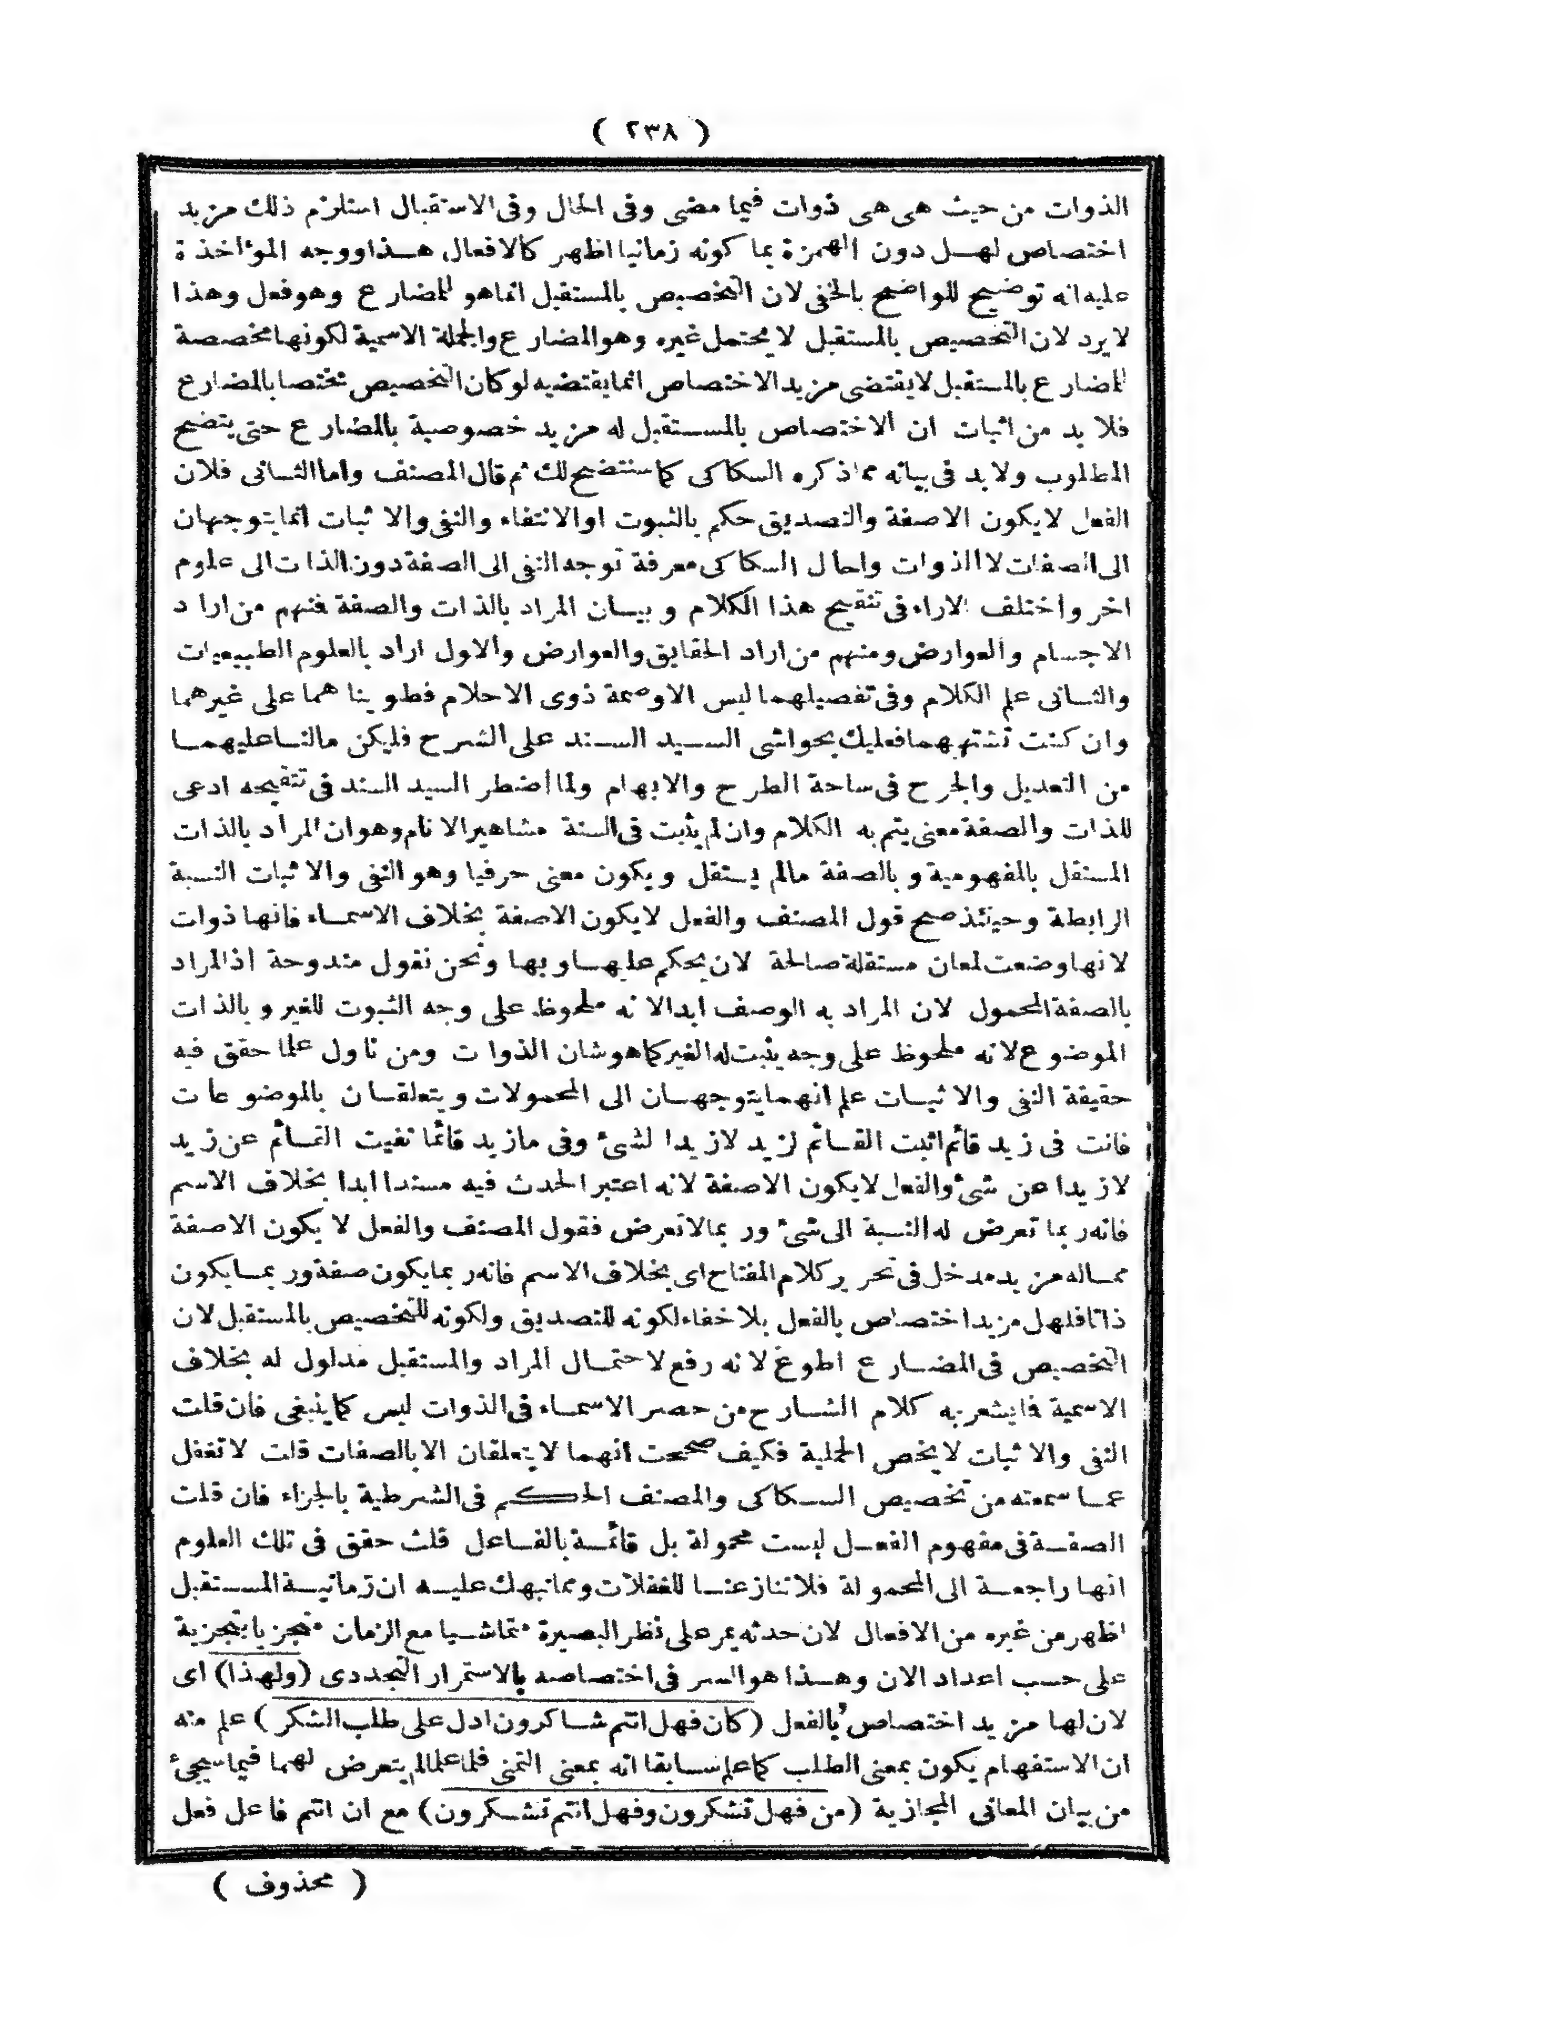 ( ٢٣٨ )
الذوات من حيث هى هى ذوات فيما مضى وفى الحال وفى الاستقبال استلزم ذلك مزيد
اختصاص لهل دون الهمزة بما كونه زمانيا اظهر كالافعال هذا ووجه المؤاخذة
عليه انه توضيح للواضح بالخفى لان التخصيص بالمستقبل انما هو للمضارع وهو فعل وهذا
لا يرد لان التخصيص بالمستقبل لا يحتمل غيره وهو المضارع والجملة الاسمية لكونها مخصصة
للمضارع بالمستقبل لا يقتضى مزيد الاختصاص انما يقتضيه لو كان التخصيص مختصا بالمضارع
فلا بد من اثبات ان الاختصاص بالمستقبل له مزيد خصوصية بالمضارع حتى يتضح
المطلوب ولا بد فى بيانه مما ذكره السكاكى كما ستتضح لك ثم قال المصنف واما الثانى فلان
الفعل لا يكون الا صفة والتصديق حكم بالثبوت او الانتفاء والنفى والاثبات انما يتوجهان
الى الصفات لا الذوات واحال السكاكى معرفة توجه النفى الى الصفة دون الذات الى علوم
اخر واختلف الاراء فى تنقيح هذا الكلام وبيان المراد بالذات والصفة فمنهم من اراد
الاجسام والعوارض ومنهم من اراد الحقايق والعوارض والاول اراد بالعلوم الطبيعيات
والثانى علم الكلام وفى تفصيلهما ليس الا وصمة ذوى الاحلام فطويناهما على غيرهما
وان كنت تشتهيهما فعليك بحواشى السيد السند على الشرح فليكن مالنا عليهما
من التعديل والجرح فى ساحة الطرح والابهام ولما اضطر السيد السند فى تنقيحه ادعى
للذات والصفة معنى يتم به الكلام وان لم يثبت فى السنة مشاهير الانام وهو ان المراد بالذات
المستقل بالمفهومية وبالصفة مالم يستقل ويكون معنى حرفيا وهو النفى والاثبات النسبة
الرابطة وحينئذ صح قول المصنف والفعل لا يكون الا صفة بخلاف الاسماء فانها ذوات
لانها وضعت لمعان مستقلة صالحة لان يحكم عليها وبها ونحن نقول مندوحة اذ المراد
بالصفة المحمول لان المراد به الوصف ابدا لانه ملحوظ على وجه الثبوت للغير وبالذات
الموضوع لانه ملحوظ على وجه يثبت له الغير كما هو شان الذوات ومن ناول علما حقق فيه
حقيقة النفى والاثبات علم انهما يتوجهان الى المحمولات ويتعلقان بالموضوعات
فانت فى زيد قائم اثبت القائم لزيد لا زيدا لشئ وفى ما زيد قائما نفيت القائم عن زيد
لا زيدا عن شئ والفعل لا يكون الا صفة لانه اعتبر الحدث فيه مسندا ابدا بخلاف الاسم
فانه ربما تعرض له النسبة الى شئ وربما لا تعرض فقول المصنف والفعل لا يكون الا صفة
مماله مزيد مدخل فى تحرير كلام المفتاح اى بخلاف الاسم فانه ربما يكون صفة وربما يكون
ذاتا فلهل مزيد اختصاص بالفعل بلا خفاء لكونه للتصديق ولكونه للتخصيص بالمستقبل لان
التخصيص فى المضارع اطوع لانه رفع لاحتمال المراد والمستقبل مدلول له بخلاف
الاسمية فما يشعر به كلام الشارح من حصر الاسماء فى الذوات ليس كما ينبغى فان قلت
النفى والاثبات لا يخص الحملية فكيف صححت انهما لا يتعلقان الا بالصفات قلت لا تغفل
عما سمعته من تخصيص السكاكى والمصنف الحكم فى الشرطية بالجزاء فان قلت
الصفة فى مفهوم الفعل ليست محمولة بل قائمة بالفاعل قلت حقق فى تلك العلوم
انها راجعة الى المحمولة فلا تنازعنا للغفلات ومما نبهك عليه ان زمانية المستقبل
اظهر من غيره من الافعال لان حدثه يمر على نظر البصيرة متماشيا مع الزمان متجزيا بتجزية
على حسب اعداد الان وهذا هو السر فى اختصاصه بالاستمرار التجددى (ولهذا) اى
لان لها مزيد اختصاص بالفعل (كان فهل انتم شاكرون ادل على طلب الشكر) علم منه
ان الاستفهام يكون بمعنى الطلب كما علم سابقا انه بمعنى التمنى فلما علما لم يتعرض لهما فيما سيجئ
من بيان المعانى المجازية (من فهل تشكرون وفهل انتم تشكرون) مع ان انتم فاعل فعل
( محذوف )